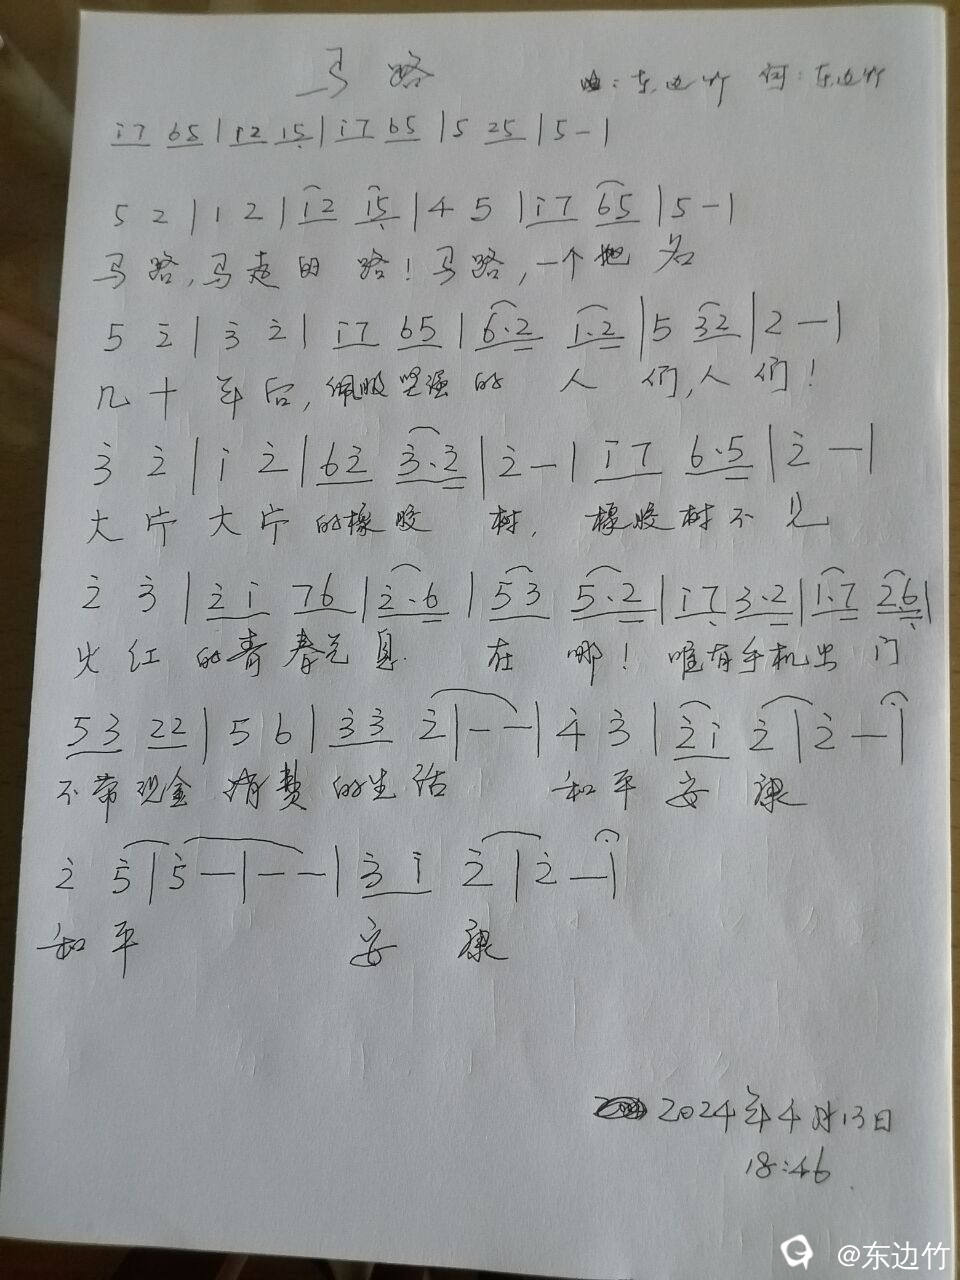 马路
曲：东边竹 词：东边竹
i7 65 | i2 i5 | i7 65 | 5 25 | 5 - |
5 2 | 1 2 | i2 i5 | 4 5 | i7 65 | 5 - |
马路，马走的路！马路，一个地名
5 2̇ | 3̇ 2̇ | i7 65 | 6·2 i·2 | 5 32 | 2 — |
几十年后，佩服坚强的人们，人们！
3̇ 2̇ | i 2̇ | 62̇ 3̇·2̇ | 2̇ - | i7 6·5 | 2̇ - |
大片大片的橡胶树，橡胶树不见
2̇ 3̇ | 2̇i 76 | 2̇·6 | 53 5·2 | i7 3·2 | i·7 26 |
火红的青春气息 在哪！唯有手机出门
53 22 | 5 6 | 3̇3̇ 2̇ | - - | 4̇ 3̇ | 2̇i 2̇ | 2̇ — |
不带现金消费的生活 和平安康
2̇ 5̇ | 5̇ — | — — | 3̇ i 2̇ | 2̇ — |
和平 安康
2024年4月13日
18:46
@东边竹